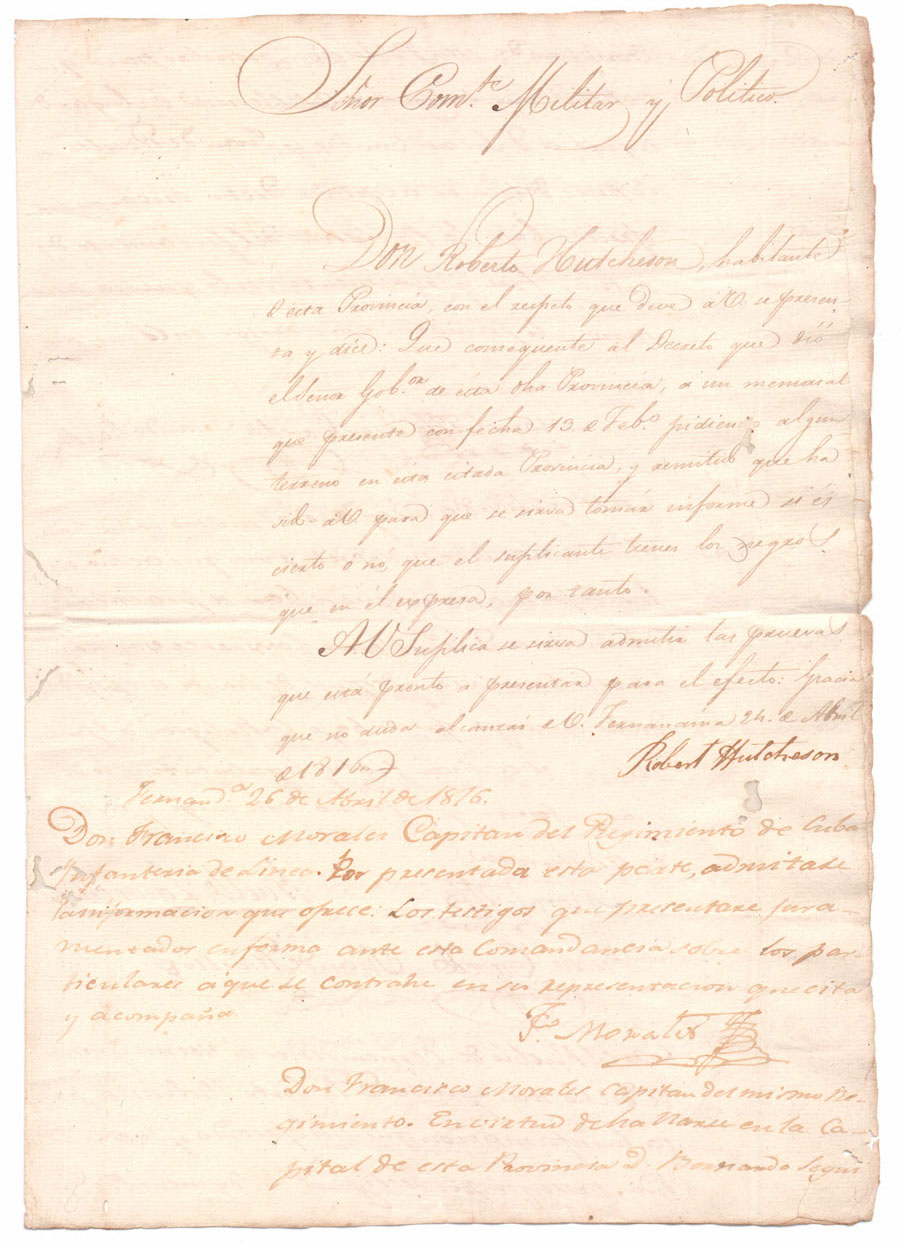 Señor Com.te Militar y Politico.
Don Roberto Hutcheson, habitante
de esta Provincia, con el respeto que deve á V. se presen-
ta y dice: Que consequente al Decreto que dió
el Señor Gob.or de esta dha Provincia, a un memorial
que presenté con fecha 13 de Febo pidiendo algun
terreno en esta citada Provincia, y remitido que ha
sido á V. para que se sirva tomár informe si és
cierto ó no, que el suplicante tiene los negros
que en él espresa, por tanto.
A V Suplica se sirva admitir las pruevas
que está pronto a presentar para el efecto: Gracia
que no duda alcanzar de V. Fernandina 24. de Abril
de 1816
Robert Hutcheson
Fernand.a 26 de Abril de 1816.
Don Francisco Morales Capitan del Regimiento de Cuba
Infanteria de Linea. Por presentada esta parte, admitase
la informacion que ofrece: Los testigos que presentare jura-
mentados en forma ante esta Comandancia sobre los par-
ticulares a que se contrahe en su representacion que cita
y acompaña.
F.co Morales
Don Francisco Morales Capitan del mismo Re-
gimiento. En virtud de hallarse en la Ca-
pital de esta Provincia d. Bernardo Segui